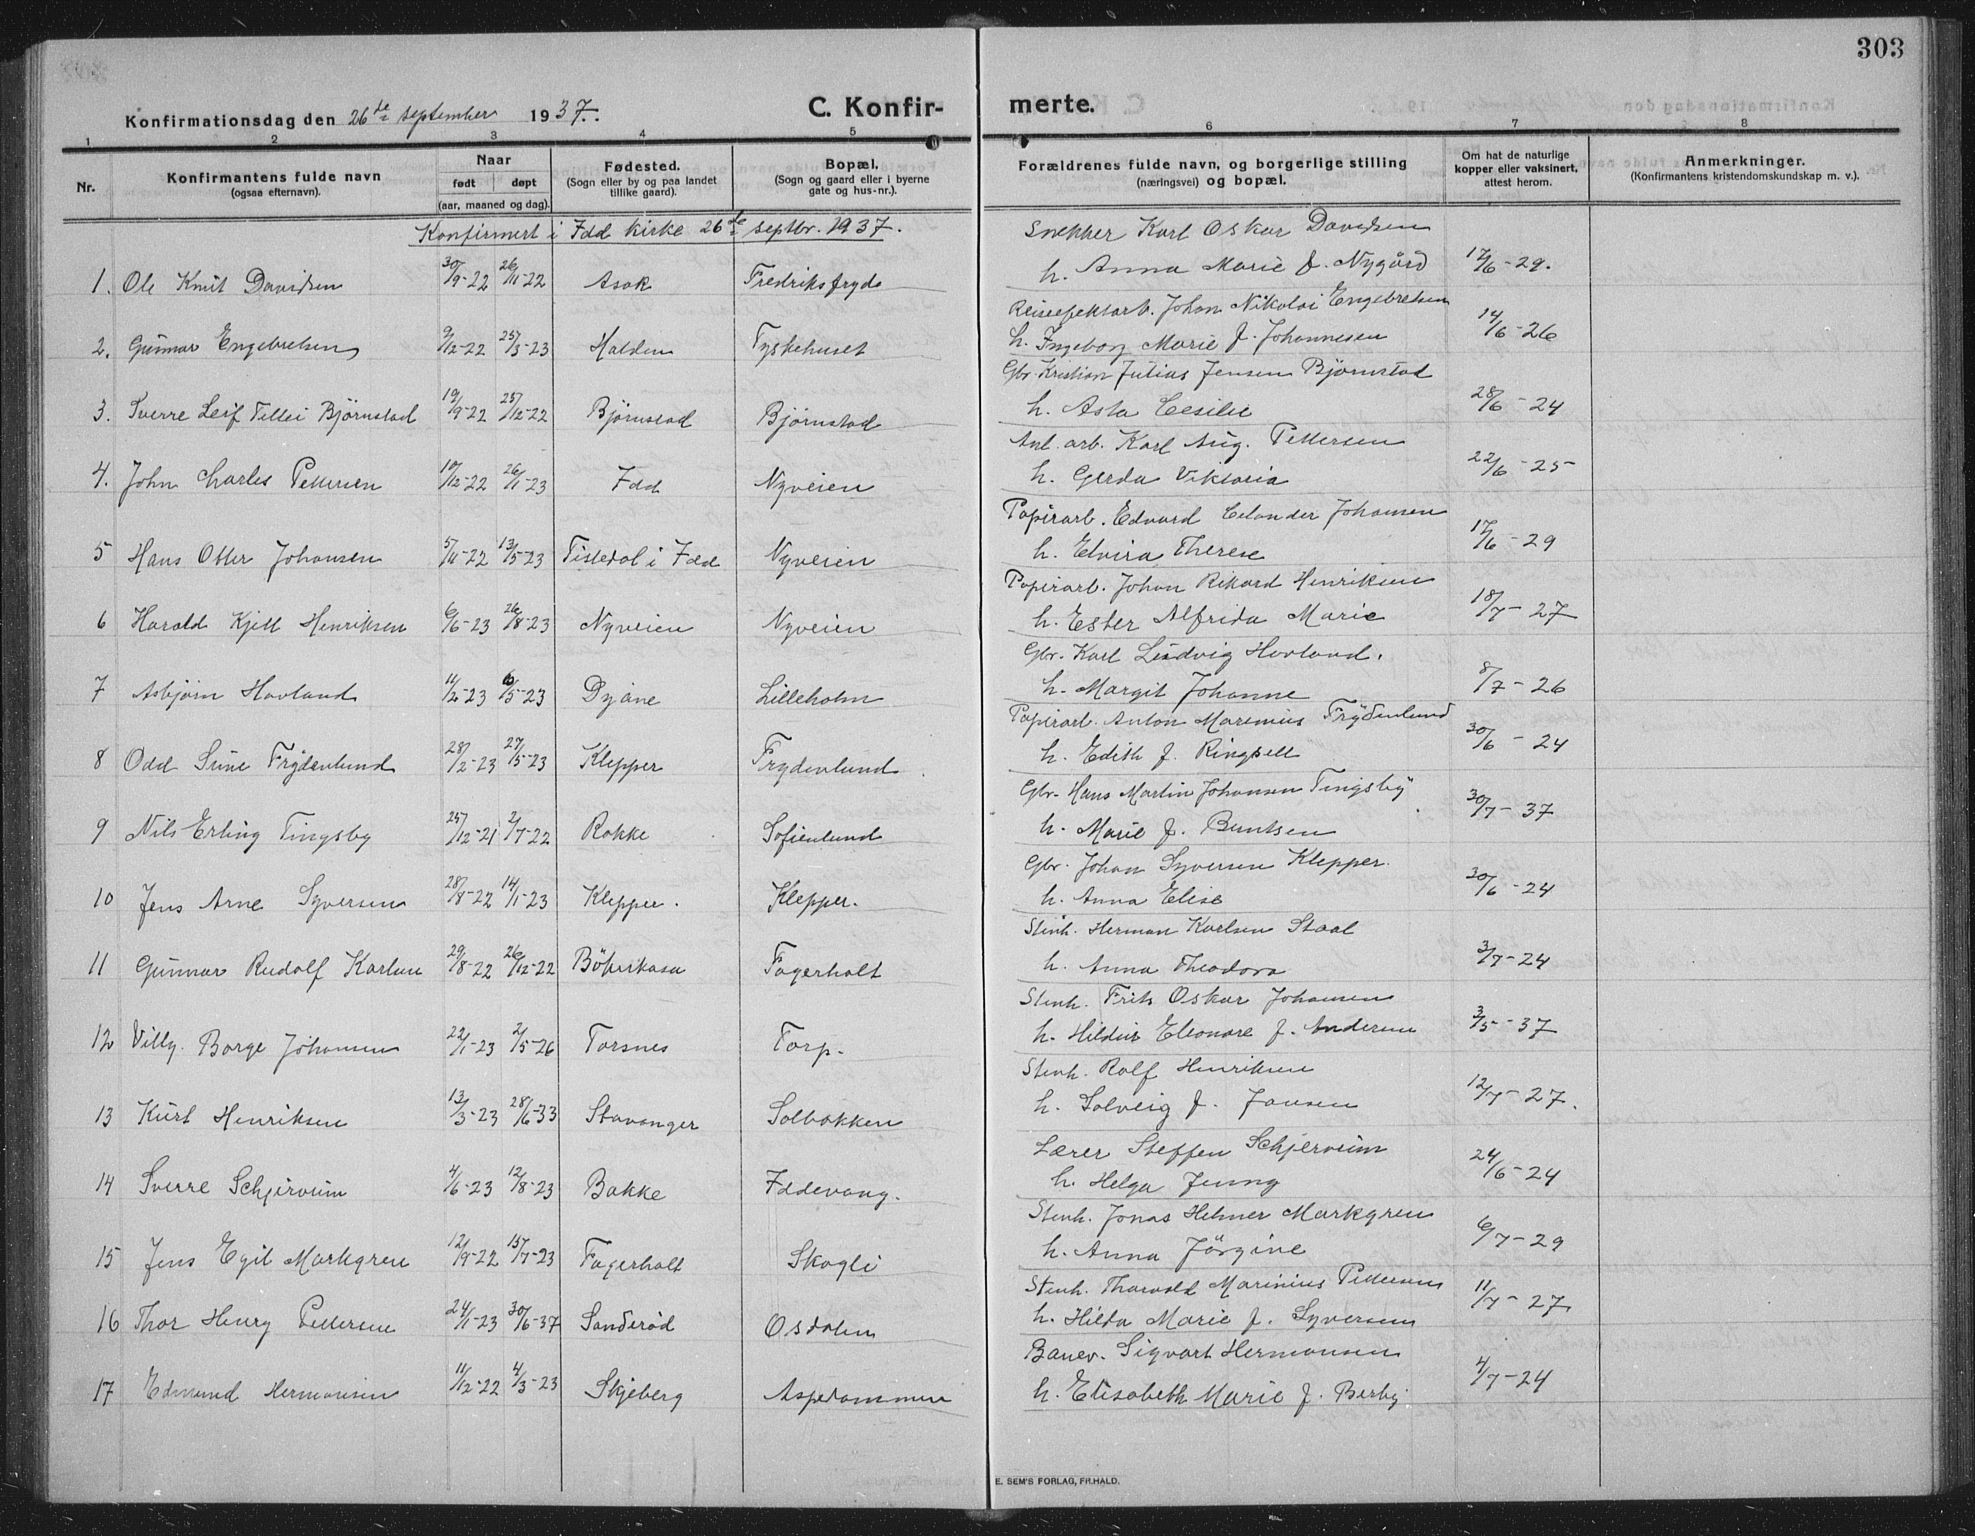 303
Konfirmationsdag den 26de september 1937.
C. Konfir-
merte.
1 2 3 4 5 6 7 8
Nr.
Konfirmantens fulde navn
(ogsaa efternavn).
Naar
født døpt
(aar, maaned og dag).
Fødested.
(Sogn eller by og paa landet
tillike gaard).
Bopæl.
(Sogn og gaard eller i byerne
gate og hus-nr.).
Forældrenes fulde navn, og borgerlige stilling
(næringsvei) og bopæl.
Om hat de naturlige
kopper eller vaksinert,
attest herom.
Anmerkninger.
(Konfirmantens kristendomskundskap m. v.).
Konfirmert i Idd kirke 26de septbr. 1937.
Snekker Karl Oskar Davidsen
1. Ole Knut Davidsen 30/9-22 26/11-22 Asak Fredriksfryd h. Anna Marie f. Nygård 17/6-29.
Johan Nikolai Engebretsen
2. Gunnar Engebretsen 9/12-22 25/3-23 Halden Tyskehuset h. Ingeborg Marie f. Johannesen 14/6-26
Gbr. Kristian Julius Jensen Bjørnstad
3. Sverre Leif Tellei Bjørnstad 19/9-22 25/12-22 Bjørnstad Bjørnstad h. Asta Cesilie 28/6-24
Anl. arb. Karl Aug. Pettersen
4. John Charles Pettersen 10/12-22 26/1-23 Idd Nyveien h. Gerda Viktoria 22/6-25
Papirarb. Edvard Celander Johansen
5 Hans Otter Johansen 5/11-22 13/5-23 Tistedal i Idd Nyveien h. Elvira Therese 17/6-29
Papirarb. Johan Rikard Henriksen
6 Harald Kjell Henriksen 6/6-23 26/8-23 Nyveien Nyveien h. Ester Alfrida Marie 18/7-27
Gbr. Karl Ludvig Hovland.
7 Asbjørn Hovland 11/2-23 6/5-23 Dyåne Lilleholm h. Margit Johanne 8/7-26
Papirarb. Anton Marenius Frydenlund
8 Odd Sune Frydenlund 28/2-23 27/5-23 Klepper Frydenlund h. Edith f. Ringsell 30/6-24
Gbr. Hans Martin Johansen Tingsby
9 Nils Erling Tingsby 25/12-21 2/7-22 Rokke Sofienlund h. Marie f. Berntsen 30/7-37
Gbr. Johan Syversen Klepper.
10 Jens Arne Syversen 28/8-22 14/1-23 Klepper. Klepper. h. Anna Elise 30/6-24
Stenh. Herman Karlsen Staal
11 Gunnar Rudolf Karlsen 29/8-22 26/12-22 Fagerholt h. Anna Theodora 3/7-24
Stenh. Frits Oskar Johansen
12 Villy Borge Johansen 22/1-23 2/5-26 Torsnes Torp. h. Hildur Eleonore f. Andersen 3/5-37
Stenh. Rolf Henriksen
13 Kurt Henriksen 13/3-23 28/6-33 Stavanger Solbakken h. Solveig f. Jansen 12/7-27.
Lærer Steffen Schjerveim
14 Sverre Schjerveim 4/6-23 12/8-23 Bakke Iddevang. h. Helga Jenny 24/6-24
Stenh. Jonas Helmer Markgren
15 Jens Egil Markgren 12/9-22 15/7-23 Fagerholt Skogli h. Anna Jörgine 6/7-29
Stenh. Thorvald Marinius Pettersen
16 Thor Henry Pettersen 24/1-23 30/6-37 Sanderød Osdalen h. Hilda Marie f. Syversen 11/7-27
Banev. Sigvart Hermansen
17 Edmund Hermansen 11/12-22 4/3-23 Skjeberg Aspedammen h. Elisabeth Marie f. Berby 4/7-24
E. SEM'S FORLAG, FR.HALD.